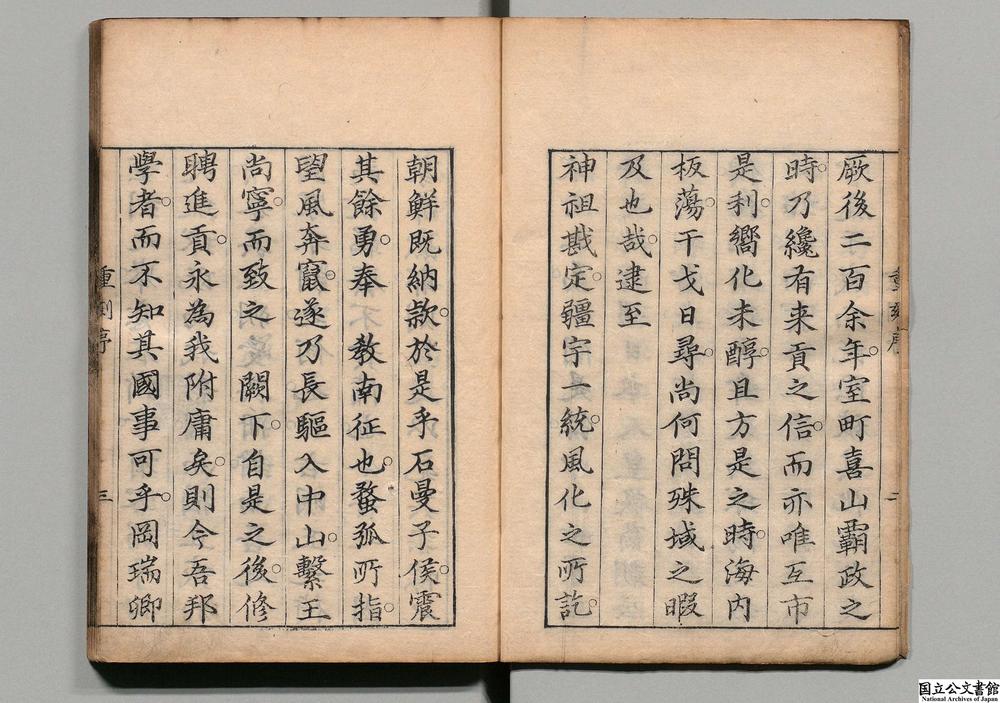 厥後二百余年室町喜山霸政之
時乃纔有来貢之信而亦唯互市
是利嚮化未醇且方是之時海内
板蕩干戈日尋尚何問殊域之暇
及也哉逮至
神祖戡定疆宇一統風化之所訖
朝鮮既納款於是乎石曼子侯震
其餘勇奉教南征也蝥弧所指
望風奔竄遂乃長驅入中山繫王
尚寧而致之闕下自是之後修
聘進貢永為我附庸矣則今吾邦
學者而不知其國事可乎岡瑞卿
重刻序
三
国立公文書館
National Archives of Japan